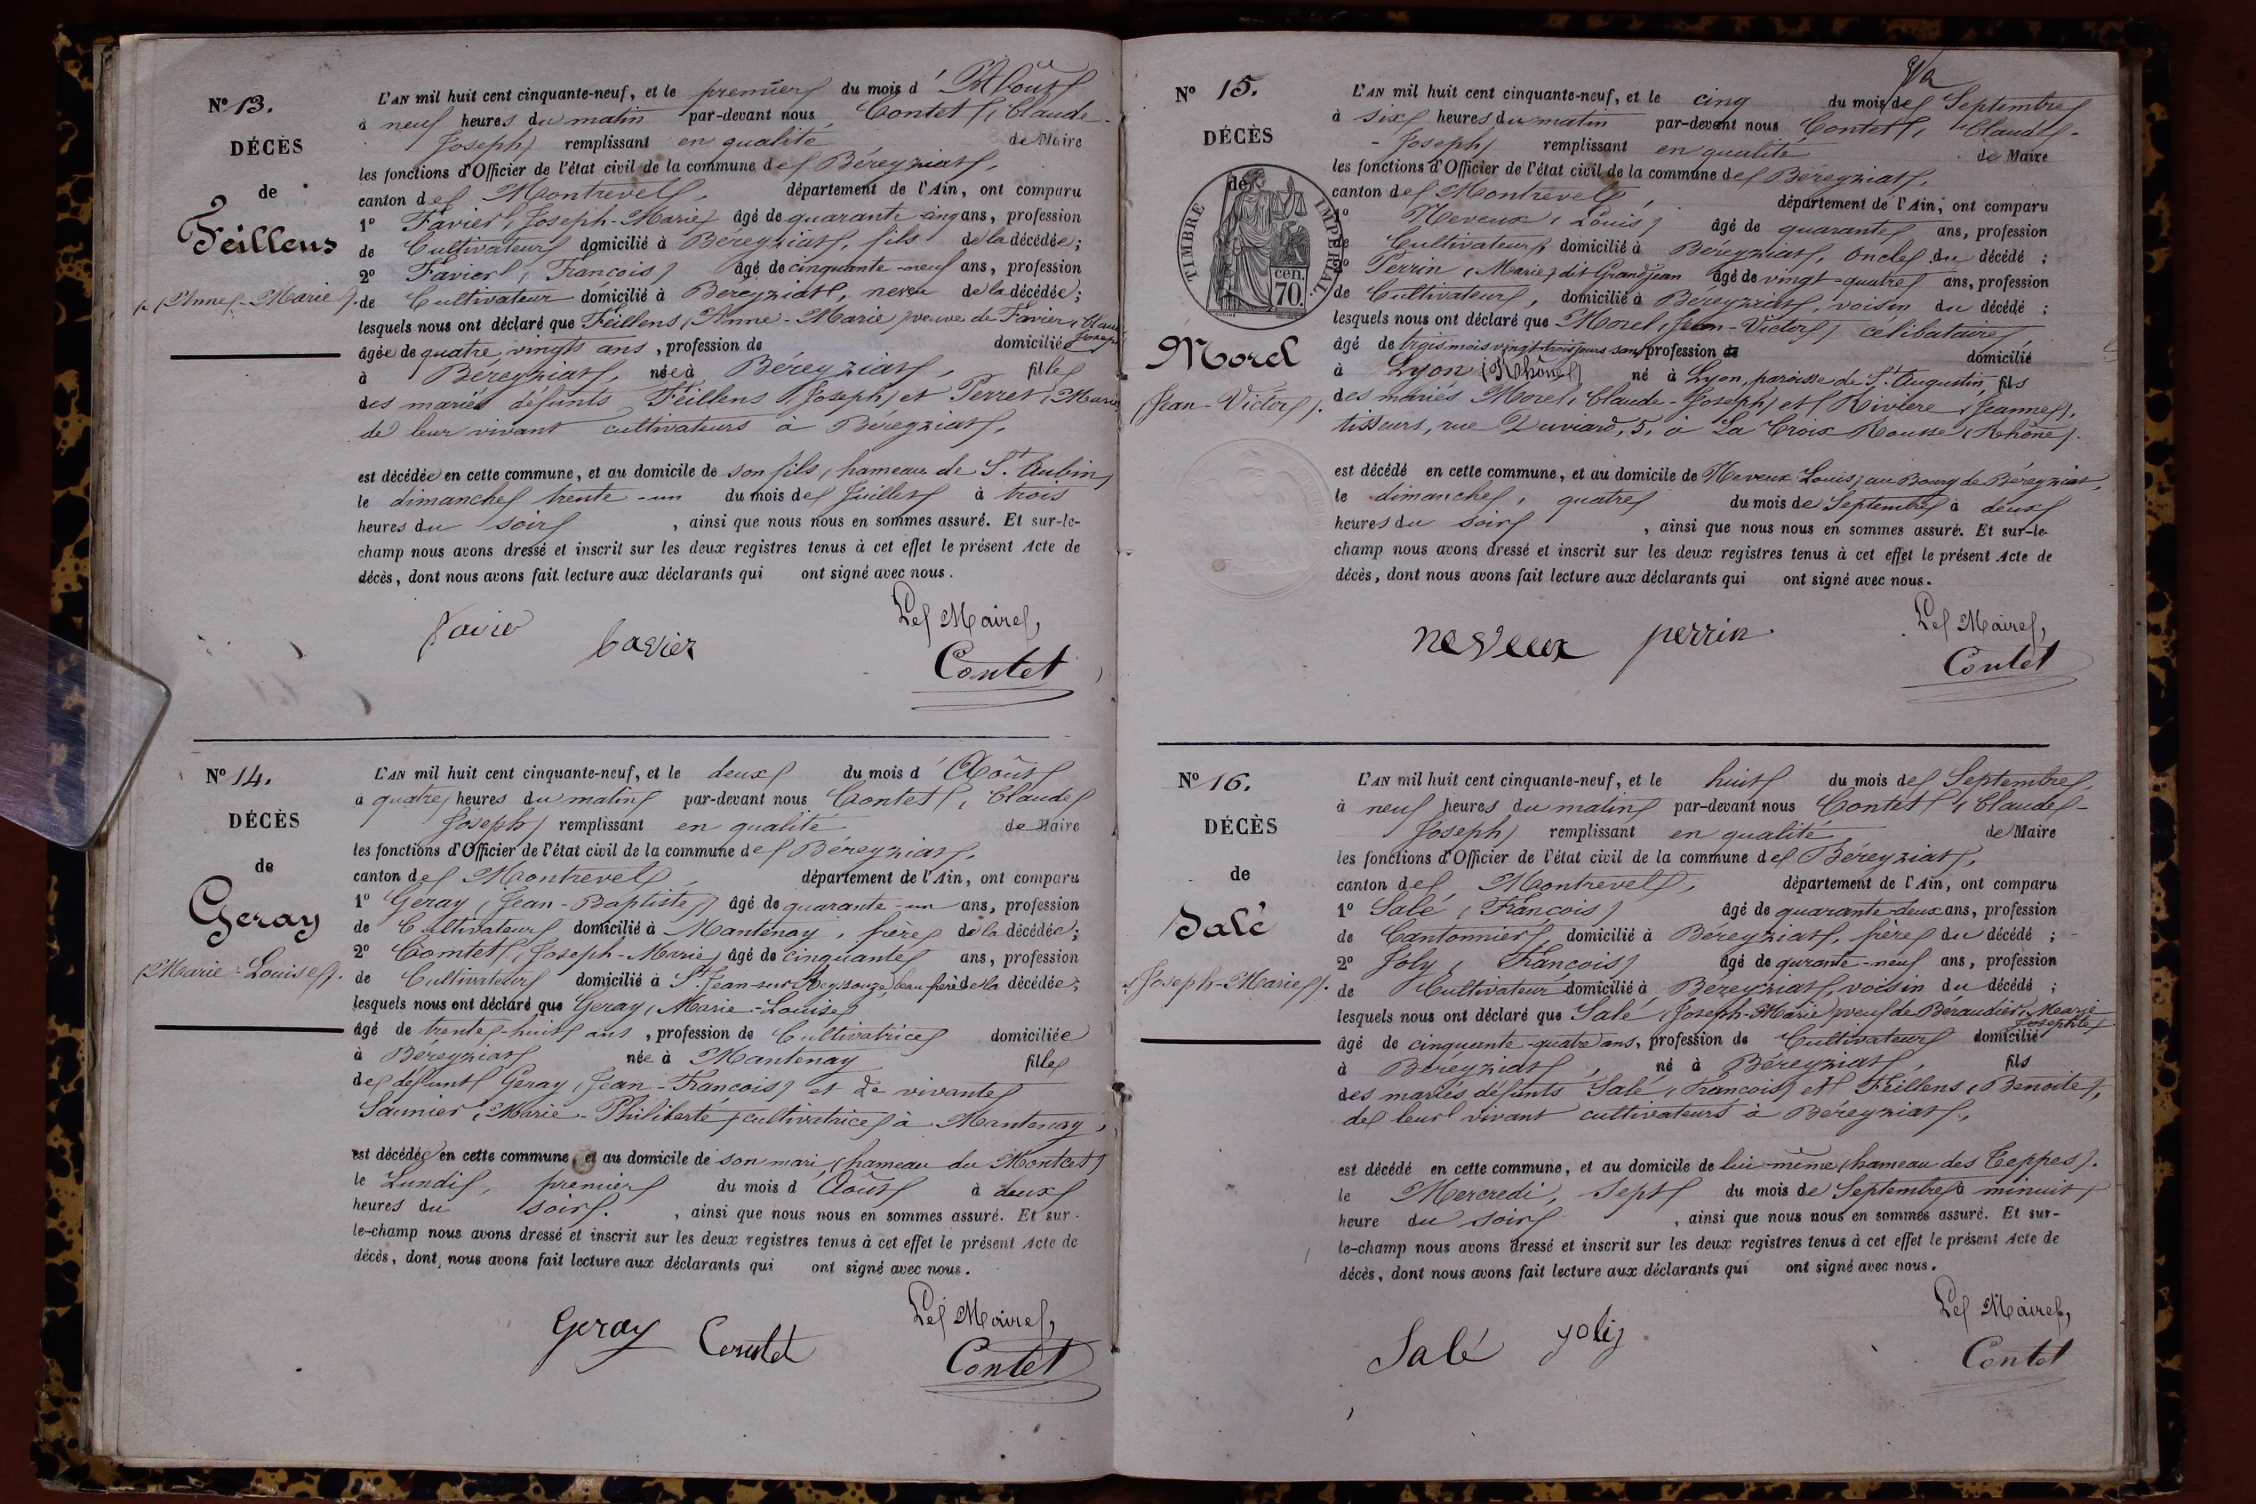 N° 13.
DÉCÈS
de
Feillens
(Anne-Marie).
L'AN mil huit cent cinquante-neuf, et le premier du mois d'Août
à neuf heures du matin par-devant nous Contet (Claude-
Joseph) remplissant en qualité de Maire
les fonctions d'Officier de l'état civil de la commune de Béreyziat,
canton de Montrevel, département de l'Ain, ont comparu
1° Favier (Joseph-Marie) âgé de quarante-cinq ans, profession
de Cultivateur domicilié à Béreyziat, fils de la décédée;
2° Favier (François) âgé de cinquante-neuf ans, profession
de Cultivateur domicilié à Bereyziat, neveu de la décédée;
lesquels nous ont déclaré que Feillens (Anne-Marie) veuve de Favier (Claude
Joseph)
âgée de quatre vingts ans, profession de domicilié
à Béreyziat, née à Béreyziat, fille
des mariés défunts Feillens (Joseph) et Perret (Marie)
de leur vivant cultivateurs à Béreyziat,
est décédée en cette commune, et au domicile de son fils, hameau de St Aubin,
le dimanche trente-un du mois de Juillet à trois
heures du soir, ainsi que nous nous en sommes assuré. Et sur-le-
champ nous avons dressé et inscrit sur les deux registres tenus à cet effet le présent Acte de
décès, dont nous avons fait lecture aux déclarants qui ont signé avec nous.
Le Maire,
favier
Contet
N° 14.
DÉCÈS
de
Geray
(Marie-Louise).
L'AN mil huit cent cinquante-neuf, et le deux du mois d'Août
à quatre heures du matin par-devant nous Contet, (Claude
Joseph) remplissant en qualité de Maire
les fonctions d'Officier de l'état civil de la commune de Béreyziat,
canton de Montrevel, département de l'Ain, ont comparu
1° Geray (Jean-Baptiste) âgé de quarante-un ans, profession
de Cultivateur domicilié à Mantenay, frère de la décédée;
2° Comtet (Joseph-Marie) âgé de cinquante ans, profession
de Cultivateur domicilié à St Jean-sur-Reyssouze, beau-frère de la décédée;
lesquels nous ont déclaré que Geray (Marie-Louise)
âgé de trente-huit ans, profession de Cultivatrice domiciliée
à Béreyziat née à Mantenay fille
de défunt Geray (Jean-François) et de vivante
Saunier (Marie-Philiberte) cultivatrice à Mantenay,
est décédée en cette commune, et au domicile de son mari, (hameau du Montcet)
le Lundi, premier du mois d'Août à deux
heures du soir, ainsi que nous nous en sommes assuré. Et sur-
le-champ nous avons dressé et inscrit sur les deux registres tenus à cet effet le présent Acte de
décès, dont nous avons fait lecture aux déclarants qui ont signé avec nous.
Le Maire,
Geray
Contet
N° 15.
DÉCÈS
de
TIMBRE IMPÉRIAL
70 cen.
Morel
(Jean-Victor).
L'AN mil huit cent cinquante-neuf, et le cinq du mois de Septembre
à six heures du matin par-devant nous Contet, (Claude-
-Joseph) remplissant en qualité de Maire
les fonctions d'Officier de l'état civil de la commune de Béreyziat,
canton de Montrevel, département de l'Ain, ont comparu
1° Neveux (Louis) âgé de quarante ans, profession
de Cultivateur, domicilié à Béreyziat, oncle du décédé;
2° Perrin (Marie) dit Grandjean âgé de vingt-quatre ans, profession
de Cultivateur, domicilié à Bereyziat, voisin du décédé;
lesquels nous ont déclaré que Morel (Jean-Victor) célibataire,
âgé de trois mois vingt-trois jours sans profession de domicilié
à Lyon (Rhône) né à Lyon, paroisse de St Augustin, fils
des mariés Morel (Claude-Joseph) et Riviere (Jeanne),
tisseurs, rue Duviard, 5, à La Croix Rousse (Rhône).
est décédé en cette commune, et au domicile de Neveux Louis, au Bourg de Béreyziat,
le dimanche, quatre du mois de Septembre à deux
heures du soir, ainsi que nous nous en sommes assuré. Et sur-le-
champ nous avons dressé et inscrit sur les deux registres tenus à cet effet le présent Acte de
décès, dont nous avons fait lecture aux déclarants qui ont signé avec nous.
Le Maire,
neveux perrin
Contet
N° 16.
DÉCÈS
de
Salé
(Joseph-Marie).
L'AN mil huit cent cinquante-neuf, et le huit du mois de Septembre,
à neuf heures du matin par-devant nous Contet, (Claude-
Joseph) remplissant en qualité de Maire
les fonctions d'Officier de l'état civil de la commune de Béreyziat,
canton de Montrevel, département de l'Ain, ont comparu
1° Salé (François) âgé de quarante-deux ans, profession
de Cantonnier, domicilié à Béreyziat, frère du décédé;
2° Joly (François) âgé de qurante-neuf ans, profession
de Cultivateur domicilié à Bereyziat, voisin du décédé;
lesquels nous ont déclaré que Salé (Joseph-Marie) veuf de Béraudier (Marie
Josephte)
âgé de cinquante-quatre ans, profession de Cultivateur domicilié
à Béreyziat, né à Béreyziat, fils
des mariés défunts Salé (François) et Feillens (Benoite),
de leur vivant cultivateurs à Béreyziat,
est décédé en cette commune, et au domicile de lui-même (hameau des Teppes).
le Mercredi, sept du mois de Septembre à minuit
heure du soir, ainsi que nous nous en sommes assuré. Et sur-
le-champ nous avons dressé et inscrit sur les deux registres tenus à cet effet le présent Acte de
décès, dont nous avons fait lecture aux déclarants qui ont signé avec nous.
Le Maire,
Salé joly
Contet